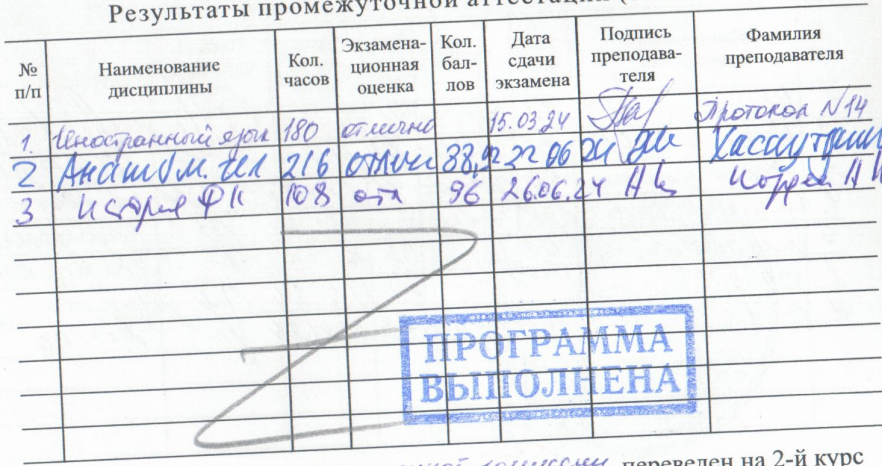 Результаты промежуточной аттестации
№ п/п Наименование дисциплины Кол. часов Экзамена-ционная оценка Кол. бал-лов Дата сдачи экзамена Подпись преподава-теля Фамилия преподавателя
1. Иностранный язык 180 отлично 15.03.24 Протокол N14
2 Анатом. чел 216 отлич 88,2 22 06 24
3 История ФК 108 отл 96 26.06.24
ПРОГРАММА
ВЫПОЛНЕНА
комиссии переведен на 2-й курс